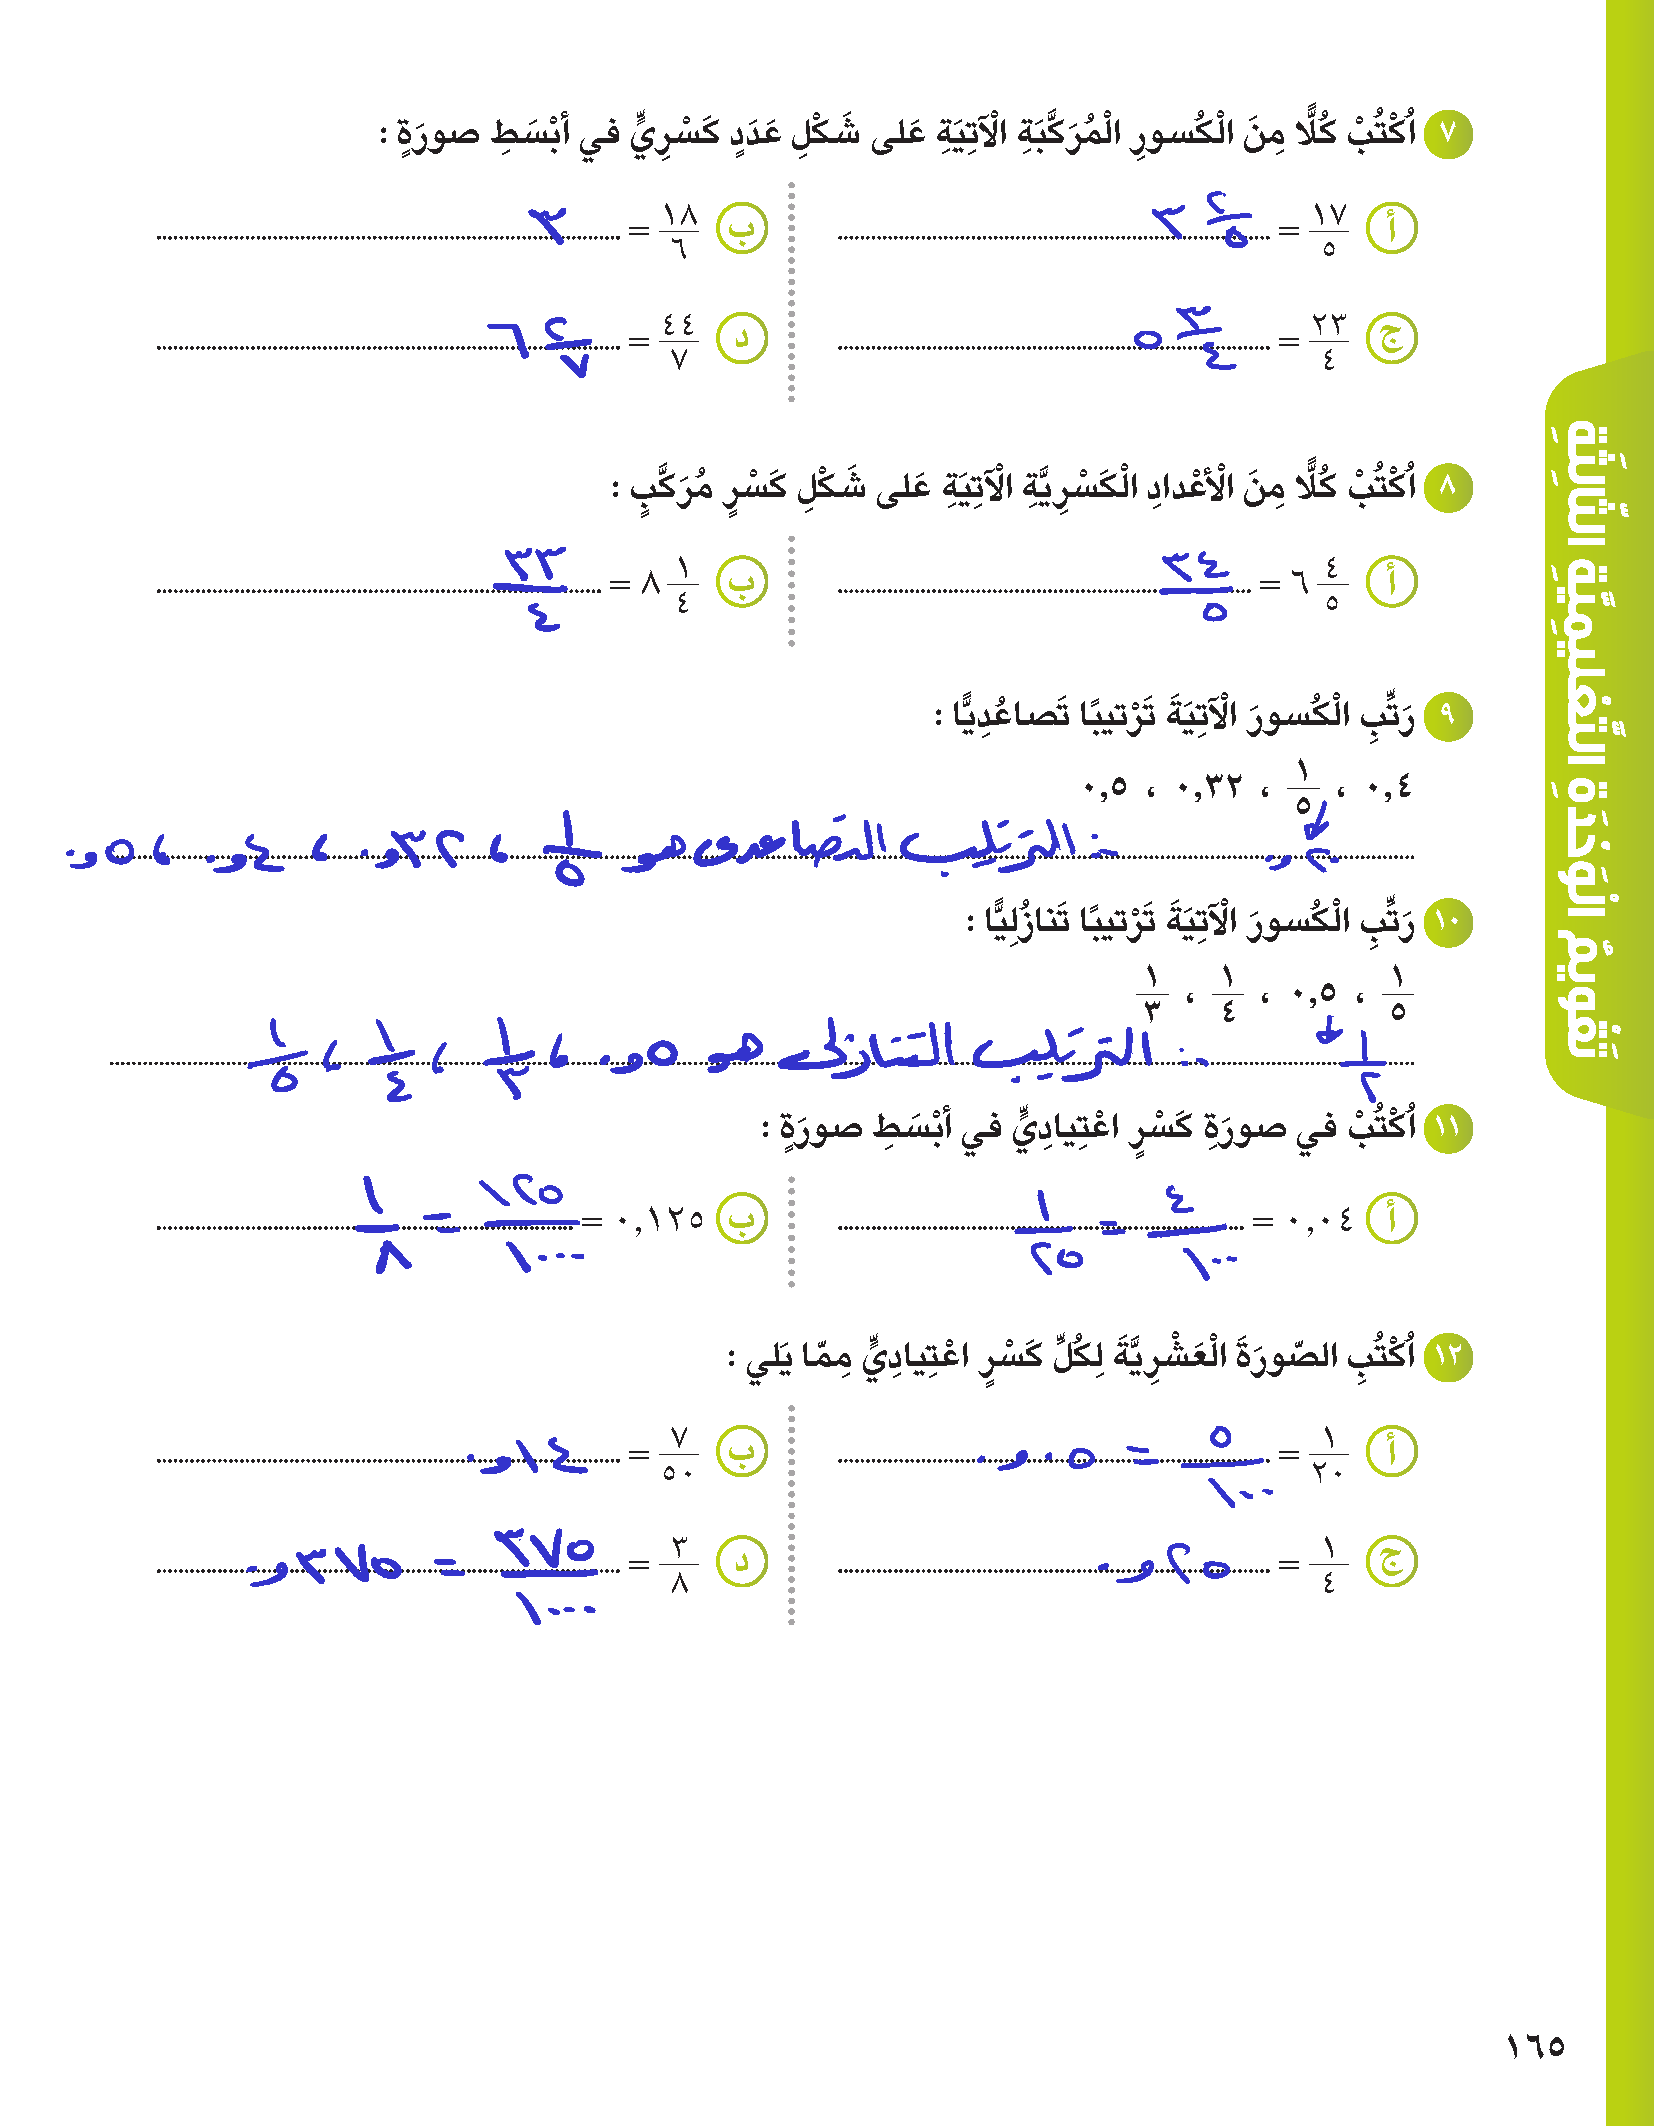 ٧ اُكْتُبْ كُلًّا مِنَ الْكُسورِ الْمُرَكَّبَةِ الْآتِيَةِ عَلى شَكْلِ عَدَدٍ كَسْرِيٍّ في أَبْسَطِ صورَةٍ :
أ ١٧/٥ = ٣ ٢/٥
ب ١٨/٦ = ٣
ج ٢٣/٤ = ٥ ٣/٤
د ٤٤/٧ = ٦ ٢/٧
٨ اُكْتُبْ كُلًّا مِنَ الْأَعْدادِ الْكَسْرِيَّةِ الْآتِيَةِ عَلى شَكْلِ كَسْرٍ مُرَكَّبٍ :
أ ٦ ٤/٥ = ٣٤/٥
ب ٨ ١/٤ = ٣٣/٤
٩ رَتِّبِ الْكُسورَ الْآتِيَةَ تَرْتيبًا تَصاعُدِيًّا :
٠,٤ ، ١/٥ ، ٠,٣٢ ، ٠,٥
٠,٢٠
∴ الترتيب التصاعدى هو ١/٥ ، ٠,٣٢ ، ٠,٤ ، ٠,٥
١٠ رَتِّبِ الْكُسورَ الْآتِيَةَ تَرْتيبًا تَنازُلِيًّا :
١/٥ ، ٠,٥ ، ١/٤ ، ١/٣
١/٢
∴ الترتيب التنازلى هو ٠,٥ ، ١/٣ ، ١/٤ ، ١/٥
١١ اُكْتُبْ في صورَةِ كَسْرٍ اعْتِيادِيٍّ في أَبْسَطِ صورَةٍ :
أ ٠,٠٤ = ٤/١٠٠ = ١/٢٥
ب ٠,١٢٥ = ١٢٥/١٠٠٠ = ١/٨
١٢ اُكْتُبِ الصّورَةَ الْعَشْرِيَّةَ لِكُلِّ كَسْرٍ اعْتِيادِيٍّ مِمّا يَلي :
أ ١/٢٠ = ٥/١٠٠ = ٠,٠٥
ب ٧/٥٠ = ٠,١٤
ج ١/٤ = ٠,٢٥
د ٣/٨ = ٣٧٥/١٠٠٠ = ٠,٣٧٥
تَقْويمُ الْوَحْدَةِ التَّعْليمِيَّةِ الثّالِثَةِ
١٦٥